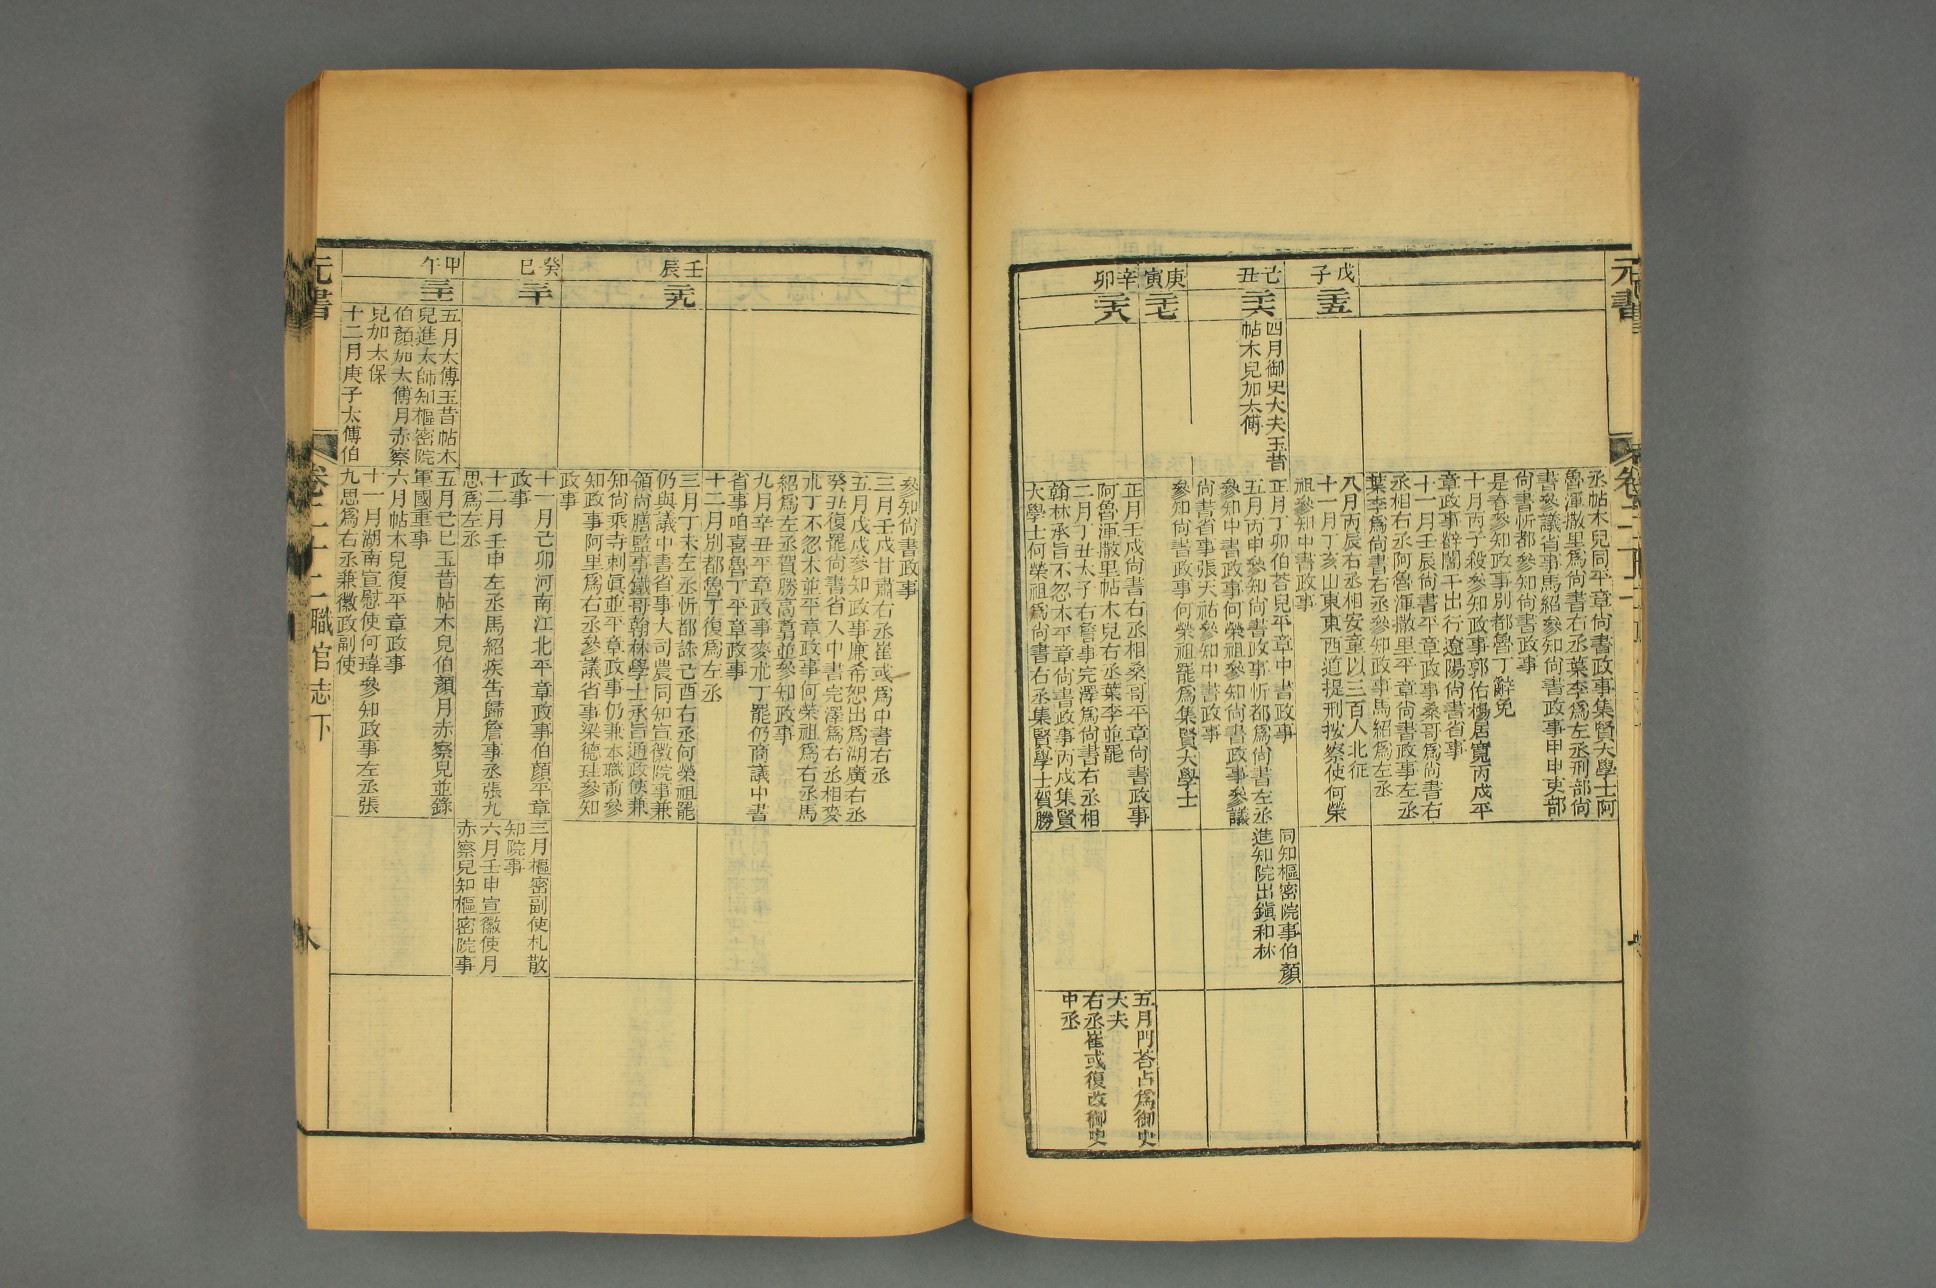 元書
丞帖木兒同平章尚書政事集賢大學士阿
魯渾撒里爲尚書右丞葉李爲左丞刑部尚
書參議省事馬紹參知尚書政事甲申吏部
尚書忻都參知尚書政事
是春參知政事別都魯丁辭免
十月丙子殺參知政事郭佑楊居寬丙戌平
章政事薛闍干出行遼陽尚書省事
十一月壬辰尚書平章政事桑哥爲尚書右
丞相右丞阿魯渾撒里平章尚書政事左丞
葉李爲尚書右丞參知政事馬紹爲左丞
戊子
二十五
八月丙辰右丞相安童以三百人北征
十一月丁亥山東東西道提刑按察使何榮
祖參知中書政事
己丑
二十六
四月御史大夫玉昔
帖木兒加太傅
正月丁卯伯荅兒平章中書政事
五月丙申參知尚書政事忻都爲尚書左丞
參知中書政事何榮祖參知尚書政事參議
尚書省事張天祐參知中書政事
同知樞密院事伯顏
進知院出鎭和林
庚寅
二十七
參知尚書政事何榮祖罷爲集賢大學士
辛卯
二十八
正月壬戌尚書右丞相桑哥平章尚書政事
阿魯渾撒里帖木兒右丞葉李並罷
二月丁丑太子右詹事完澤爲尚書右丞相
翰林承旨不忽木平章尚書政事丙戌集賢
大學士何榮祖爲尚書右丞集賢學士賀勝
五月門荅占爲御史
大夫
右丞崔彧復改御史
中丞
參知尚書政事
三月壬戌甘肅右丞崔彧爲中書右丞
五月戊戌參知政事廉希恕出爲湖廣右丞
癸丑復罷尚書省入中書完澤爲右丞相麥
朮丁不忽木並平章政事何榮祖爲右丞馬
紹爲左丞賀勝高翥並參知政事
九月辛丑平章政事麥朮丁罷仍商議中書
省事咱喜魯丁平章政事
十二月別都魯丁復爲左丞
壬辰
二十九
三月丁未左丞忻都誅己酉右丞何榮祖罷
仍與議中書省事大司農同知宣徽院事兼
領尚膳監事鐵哥翰林學士承旨通政使兼
知尚乘寺刺眞並平章政事仍兼本職前參
知政事阿里爲右丞參議省事梁德珪參知
政事
癸巳
三十
十一月己卯河南江北平章政事伯顏平章
政事
十二月壬申左丞馬紹疾告歸詹事丞張九
思爲左丞
三月樞密副使札散
知院事
六月壬申宣徽使月
赤察兒知樞密院事
甲午
三十一
五月太傅玉昔帖木
兒進太師知樞密院
伯顏加太傅月赤察
兒加太保
十二月庚子太傅伯
五月己巳玉昔帖木兒伯顏月赤察兒並錄
軍國重事
六月帖木兒復平章政事
十一月湖南宣慰使何瑋參知政事左丞張
九思爲右丞兼徽政副使
元書
卷二十二職官志下